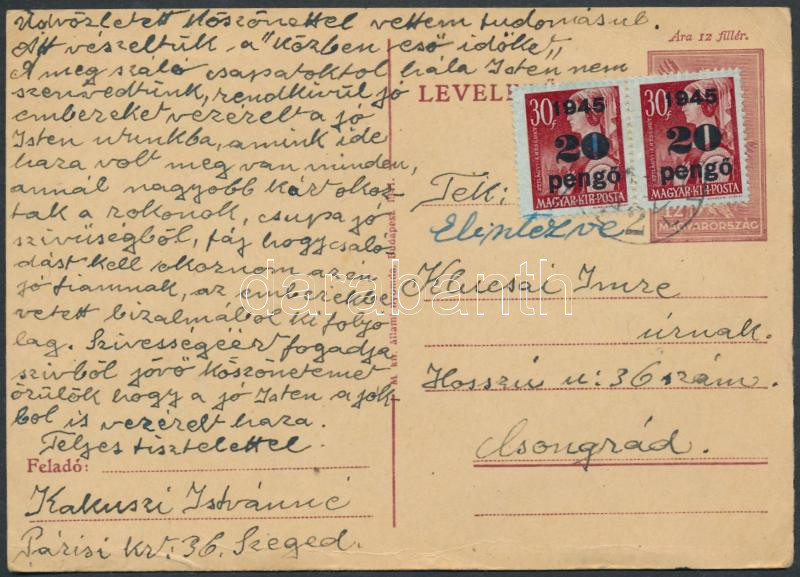 Üdvözletét Köszönettel vettem tudomásul.
Átt vészeltük a "közben eső időket"
A meg száló csapatoktol hála Isten nem
szenvedtünk, rendkivül jó
embereket vezérelt a jó
Isten utunkba, amink ide
haza volt meg van minden,
annál nagyobb kárt okoz
tak a rokonok, csupa jó
szivüségből, fáj hogy csaló
dást kell okoznom az én
jó fiamnak, az emberekbe
vetett bizalmából ki folyó
lag. Szivességéért fogadja
szivből jövő Köszönetemet
örülök hogy a jó Isten
ból is vezérelt haza.
Teljes tisztelettel.
Feladó:
Kakuszi Istvánné
Párisi krt. 36. Szeged.
Ára 12 fillér.
LEVELE
30f
1945
20
pengő
MAGYAR·KIR·POSTA
30f
1945
20
pengő
MAGYAR·KIR·POSTA
12
MAGYARORSZÁG
Tek:
Elintézve
Klucsai Imre
úrnak.
Hosszú u: 36 szám.
Csongrád.
M. kir. állami nyomda, Budapest
darabanth